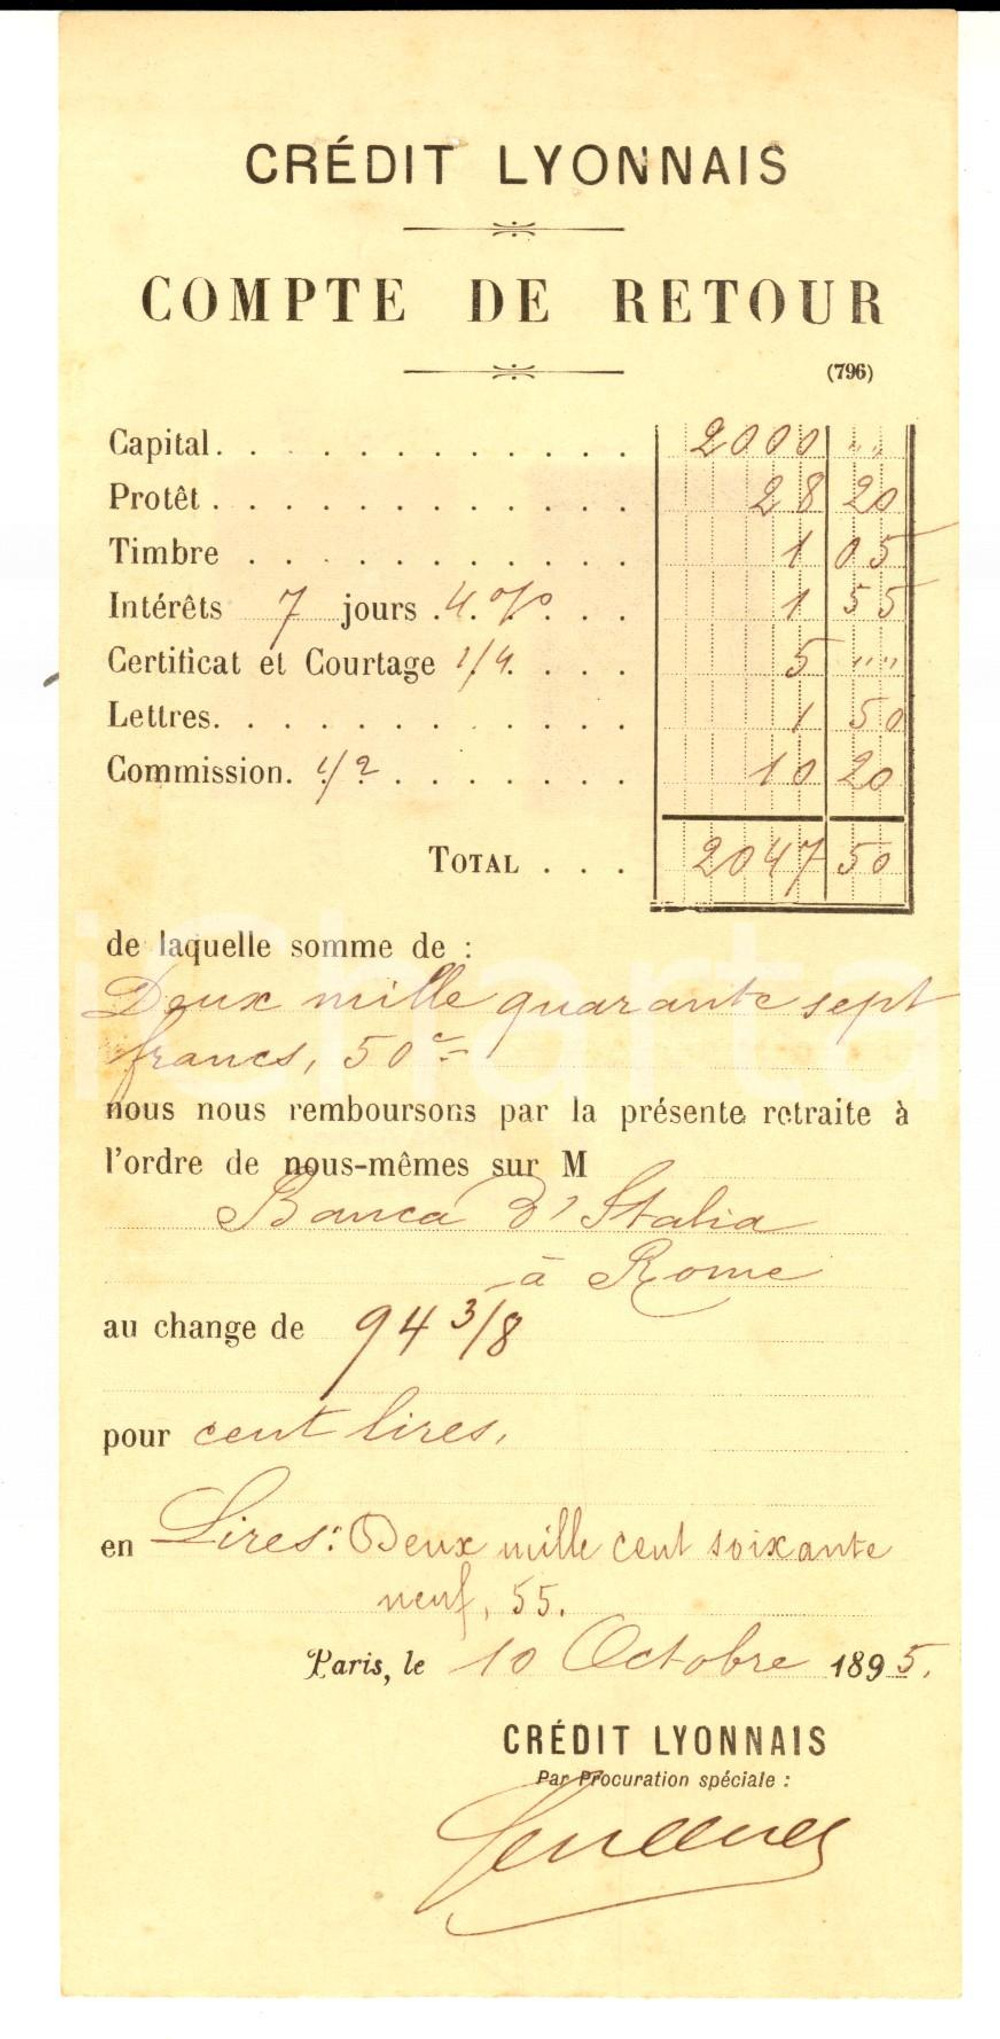 CRÉDIT LYONNAIS
COMPTE DE RETOUR
(796)
Capital. . . . . . . . . . . . . 2000 " "
Protêt . . . . . . . . . . . . . 28 20
Timbre . . . . . . . . . . . . 1 05
Intérêts 7 jours 4 % . . . 1 55
Certificat et Courtage 1/4 . . . 5 " "
Lettres. . . . . . . . . . . . . 1 50
Commission. 1/2 . . . . . . . 10 20
TOTAL . . . 2047 50
de laquelle somme de :
Deux mille quarante sept
francs, 50 c=
nous nous remboursons par la présente retraite à
l'ordre de nous-mêmes sur M
Banca d'Italia
à Rome
au change de 94 3/8
pour cent lires.
en Lires: Deux mille cent soixante
neuf, 55.
Paris, le 10 Octobre 1895.
CRÉDIT LYONNAIS
Par Procuration spéciale :